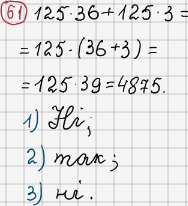 61 125·36+125·3=
=125·(36+3)=
=125·39=4875.
1) Ні;
2) так;
3) ні.